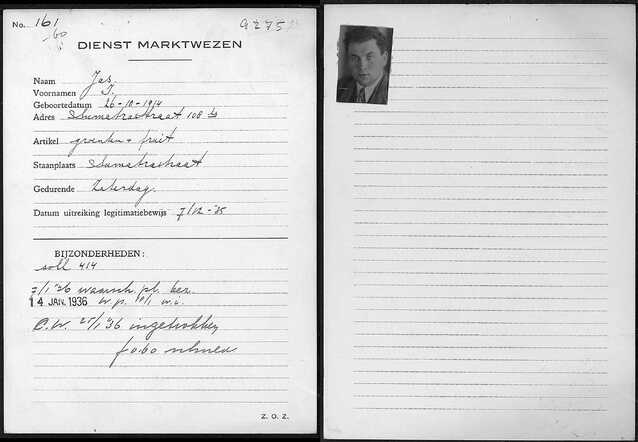 No. 161
60
DIENST MARKTWEZEN
Naam Jas.
Voornamen I.
Geboortedatum 26-10-1914
Adres Sumatrastraat 108
Artikel groenten + fruit
Staanplaats Sumatrastraat
Gedurende Zaterdag.
Datum uitreiking legitimatiebewijs 7/12-'35
BIJZONDERHEDEN:
soll 414
7/1 '36 waarsch. pl. bez.
14 JAN. 1936 w.p.
'36 ingetrokken
Z. O. Z.